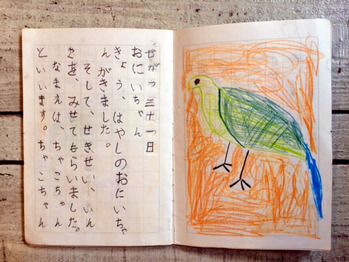 七がつ三十一日
おにいちゃん
きょう、はやしのおにいちゃ
んがきました。
そして、せきせい、いん
こを、みせてもらいました。
なまえは、ちゃこちゃん
といいます。ちゃこちゃん